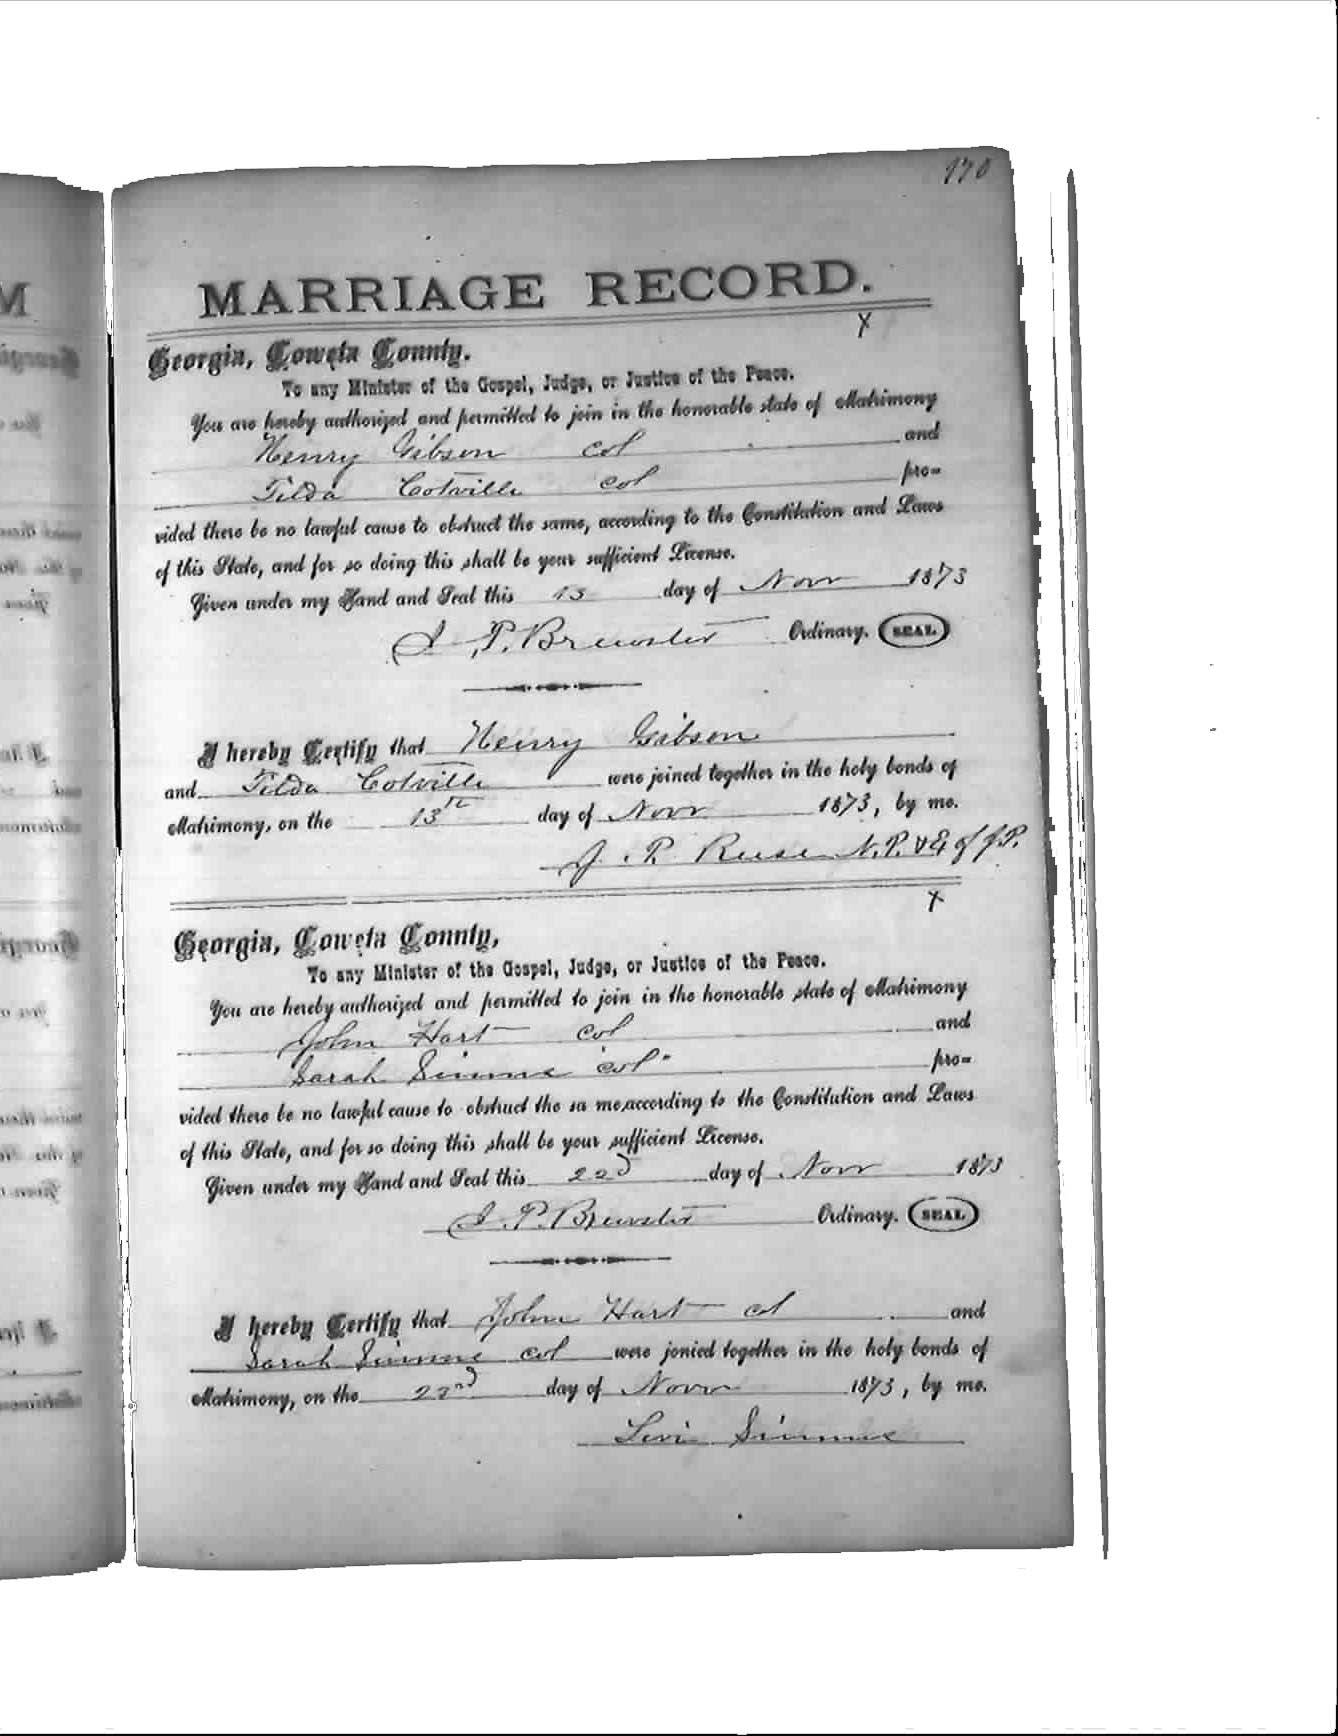 170
MARRIAGE RECORD.
X
Georgia, Coweta County.
To any Minister of the Gospel, Judge, or Justice of the Peace.
You are hereby authorized and permitted to join in the honorable state of Matrimony
Henry Gibson col and
Tilda Cotville col pro-
vided there be no lawful cause to obstruct the same, according to the Constitution and Laws
of this State, and for so doing this shall be your sufficient License.
Given under my Hand and Seal this 13 day of Novr 1873
J. P. Brewster Ordinary. SEAL
I hereby Certify that Henry Gibson
and Tilda Cotville were joined together in the holy bonds of
Matrimony, on the 13th day of Novr 1873, by me.
J. P. Reese N.P. & Ex of J.P.
X
Georgia, Coweta County,
To any Minister of the Gospel, Judge, or Justice of the Peace.
You are hereby authorized and permitted to join in the honorable state of Matrimony
John Hart col and
Sarah Simms col pro-
vided there be no lawful cause to obstruct the sa me, according to the Constitution and Laws
of this State, and for so doing this shall be your sufficient License.
Given under my Hand and Seal this 22d day of Novr 1873
J. P. Brewster Ordinary. SEAL
I hereby Certify that John Hart col and
Sarah Simms col were jonied together in the holy bonds of
Matrimony, on the 22nd day of Novr 1873, by me.
Levi Simms